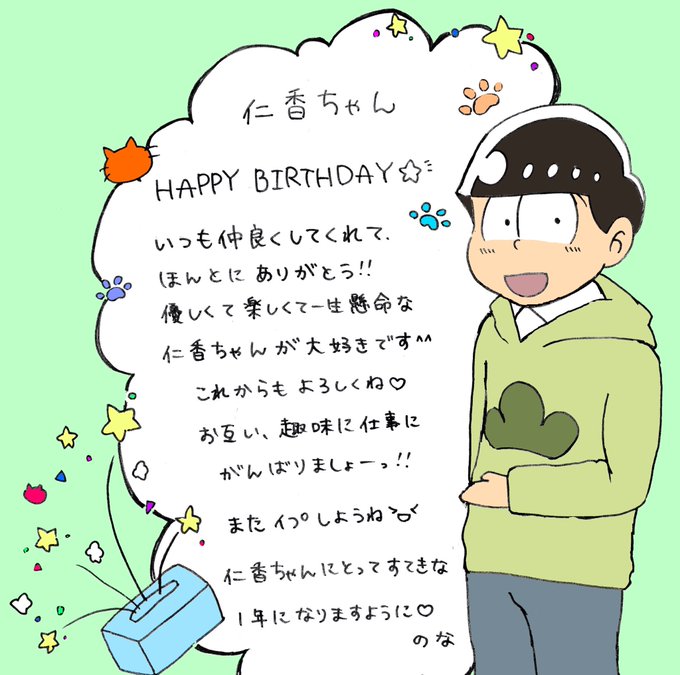 仁香ちゃん
HAPPY BIRTHDAY☆
いつも仲良くしてくれて、
ほんとに ありがとう!!
優しくて楽しくて一生懸命な
仁香ちゃんが大好きです^^
これからも よろしくね♡
お互い、趣味に仕事に
がんばりましょーっ!!
またイプしようね
仁香ちゃんにとってすてきな
1年になりますように♡
のな